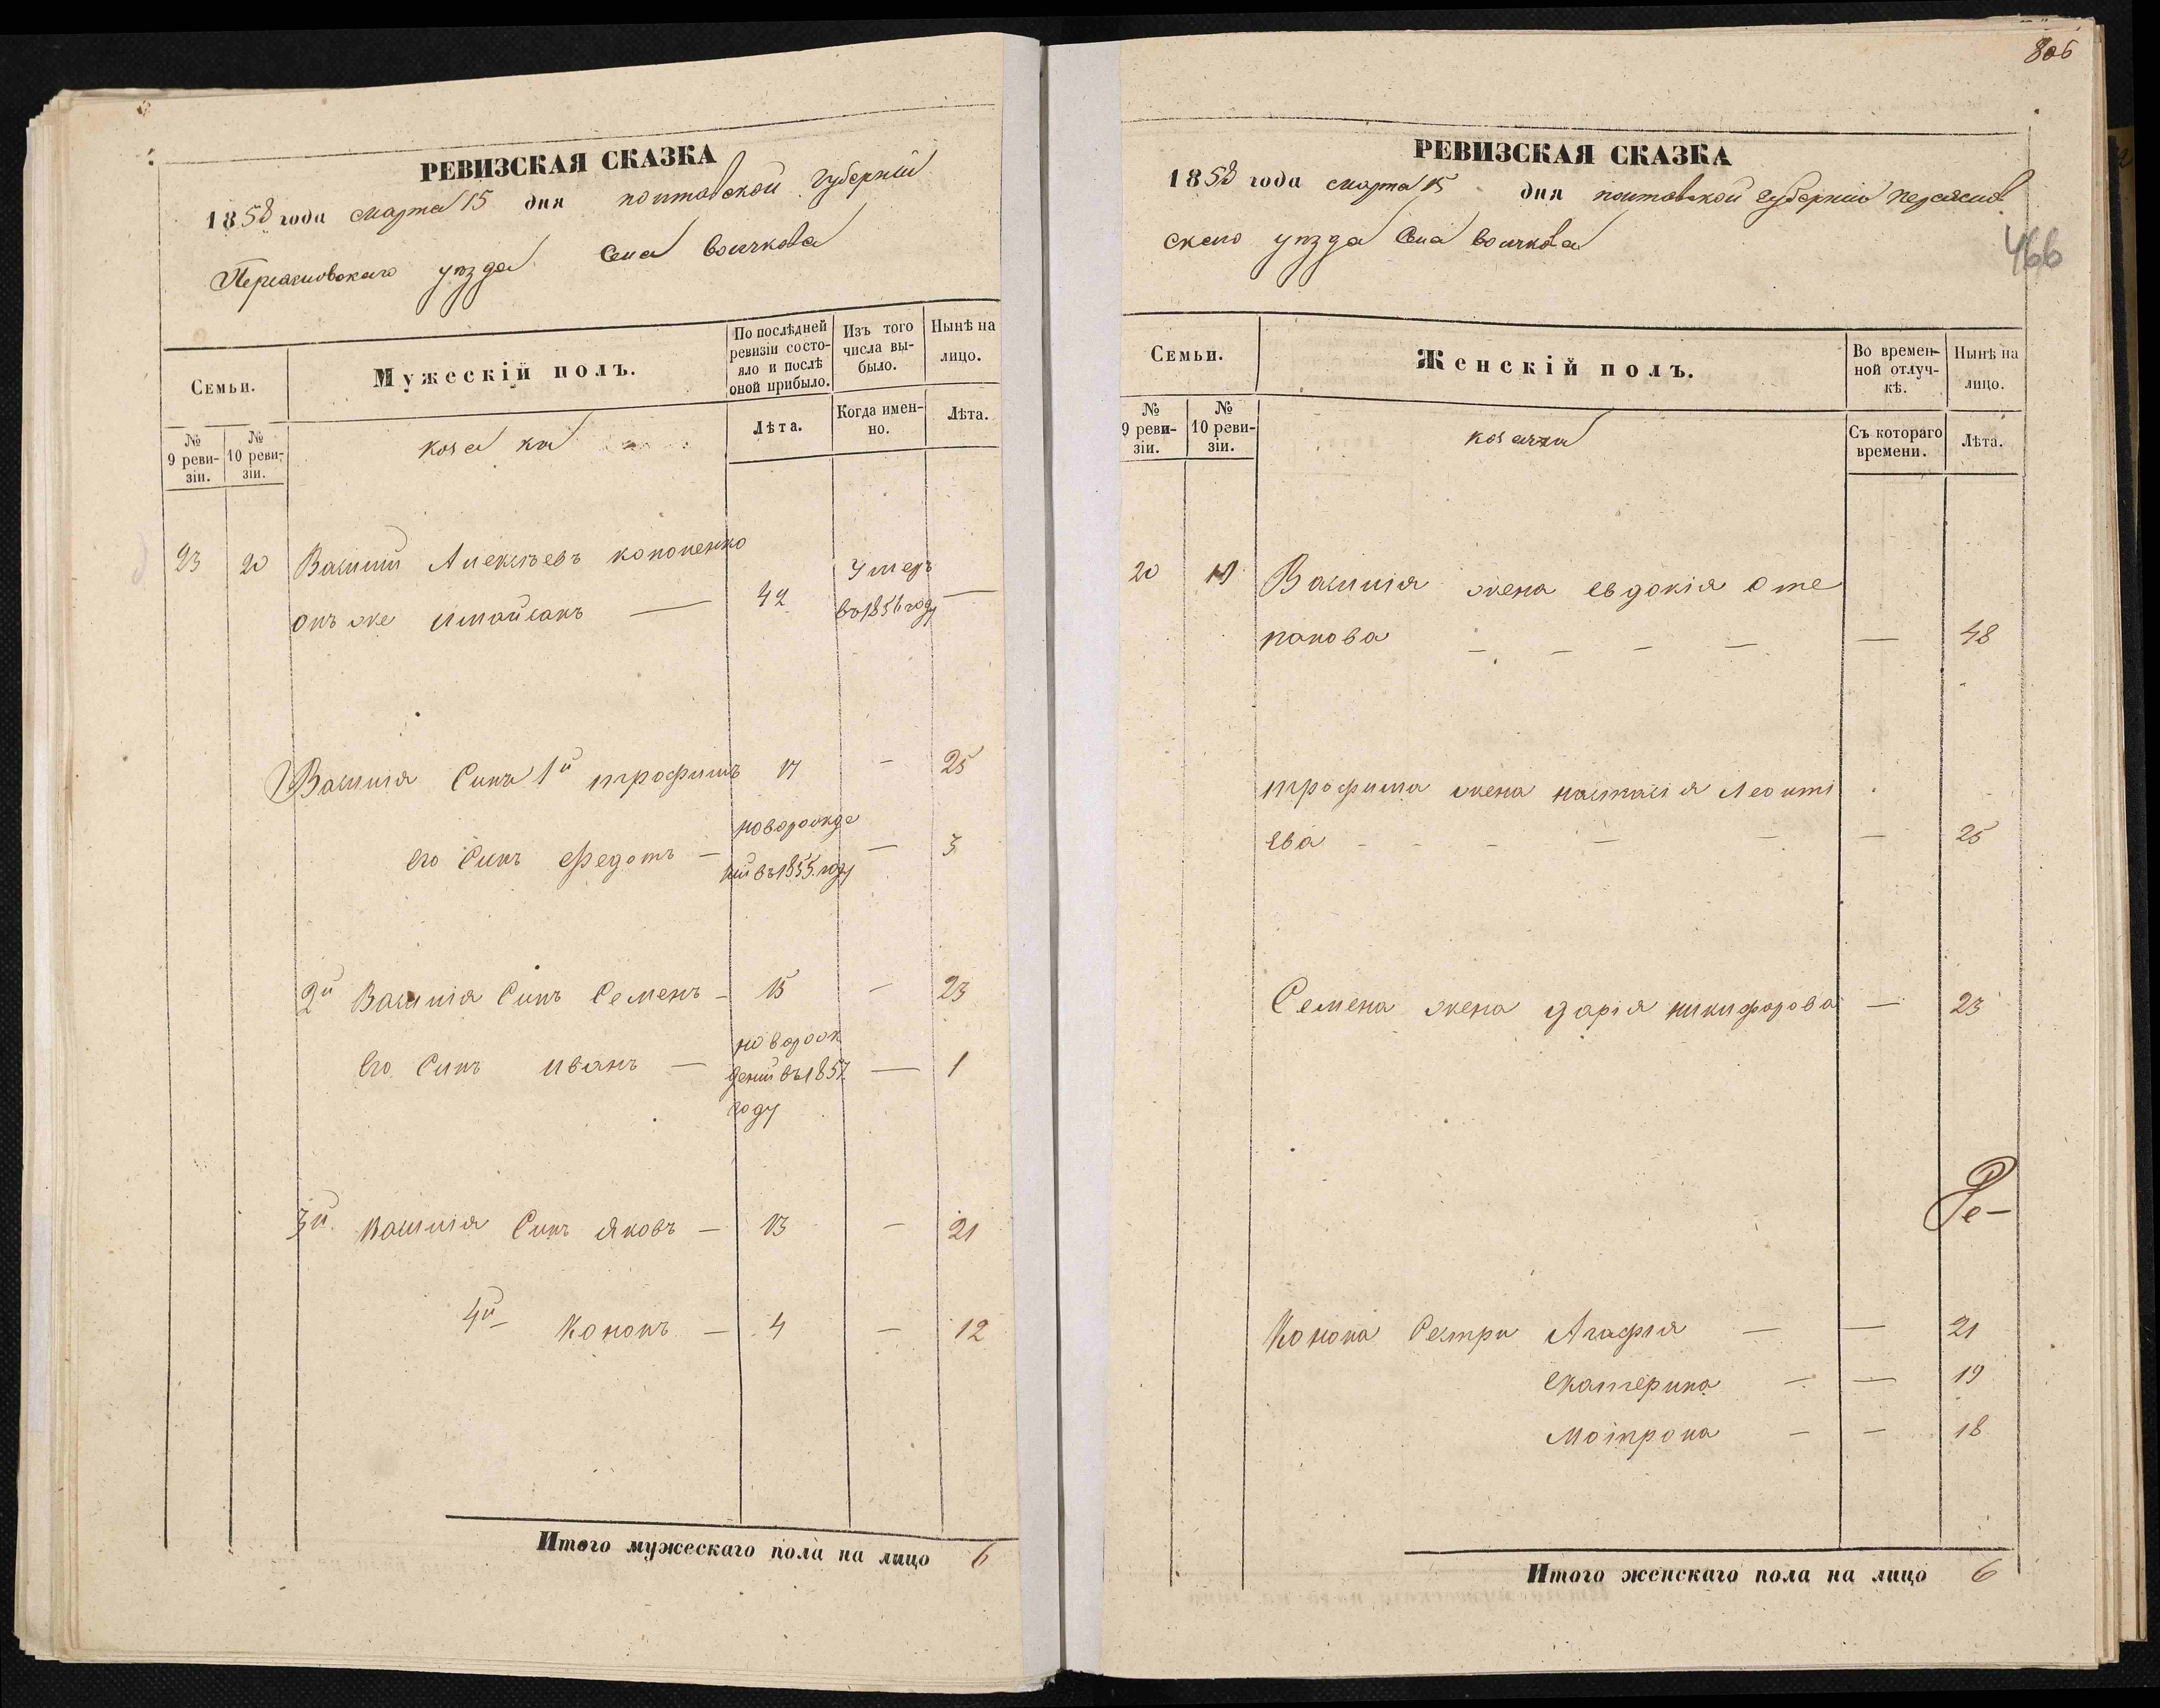 РЕВИЗСКАЯ СКАЗКА
1858 года Марта 15 дня полтавской Губерніи
Переяславскаго уѣзда Села Войчкова
Семьи.
Мужескій полъ.
По послѣдней ревизіи состояло и послѣ оной прибыло.
Изъ того числа выбыло.
Нынѣ на лицо.
№ 9 ревизіи.
№ 10 ревизіи.
козаки
Лѣта.
Когда именно.
Лѣта.
23 20 Василий Алексѣевъ кононенко
онъ же 42 Умеръ въ 1856 году —
Василія Синъ 1й трофимъ 17 — 25
его Синъ Федотъ — новорожденій въ 1855 году — 3
2й Василія Синъ Семенъ — 15 — 23
Его Синъ иванъ — новорожденій въ 1857 году — 1
3й Василія Синъ Яковъ — 13 — 21
4й Кононъ — 4 — 12
Итого мужескаго пола на лицо 6
806
РЕВИЗСКАЯ СКАЗКА
1858 года Марта 15 дня полтавской Губерніи Переяслав
скаго уѣзда Села Войчкова
466
Семьи.
Женскій полъ.
Во временной отлучкѣ.
Нынѣ на лицо.
№ 9 ревизіи.
№ 10 ревизіи.
козачки
Съ котораго времени.
Лѣта.
20 Василія жена евдокія Сте
панова — — — — — 48
трофима жена настасія Леонті
ева — — — — — 25
Семена жена дарія никифорова — 23
Ре-
Конона Сестри Агафія — — 21
екатерина — — 19
Мотрона — — 18
Итого женскаго пола на лицо 6